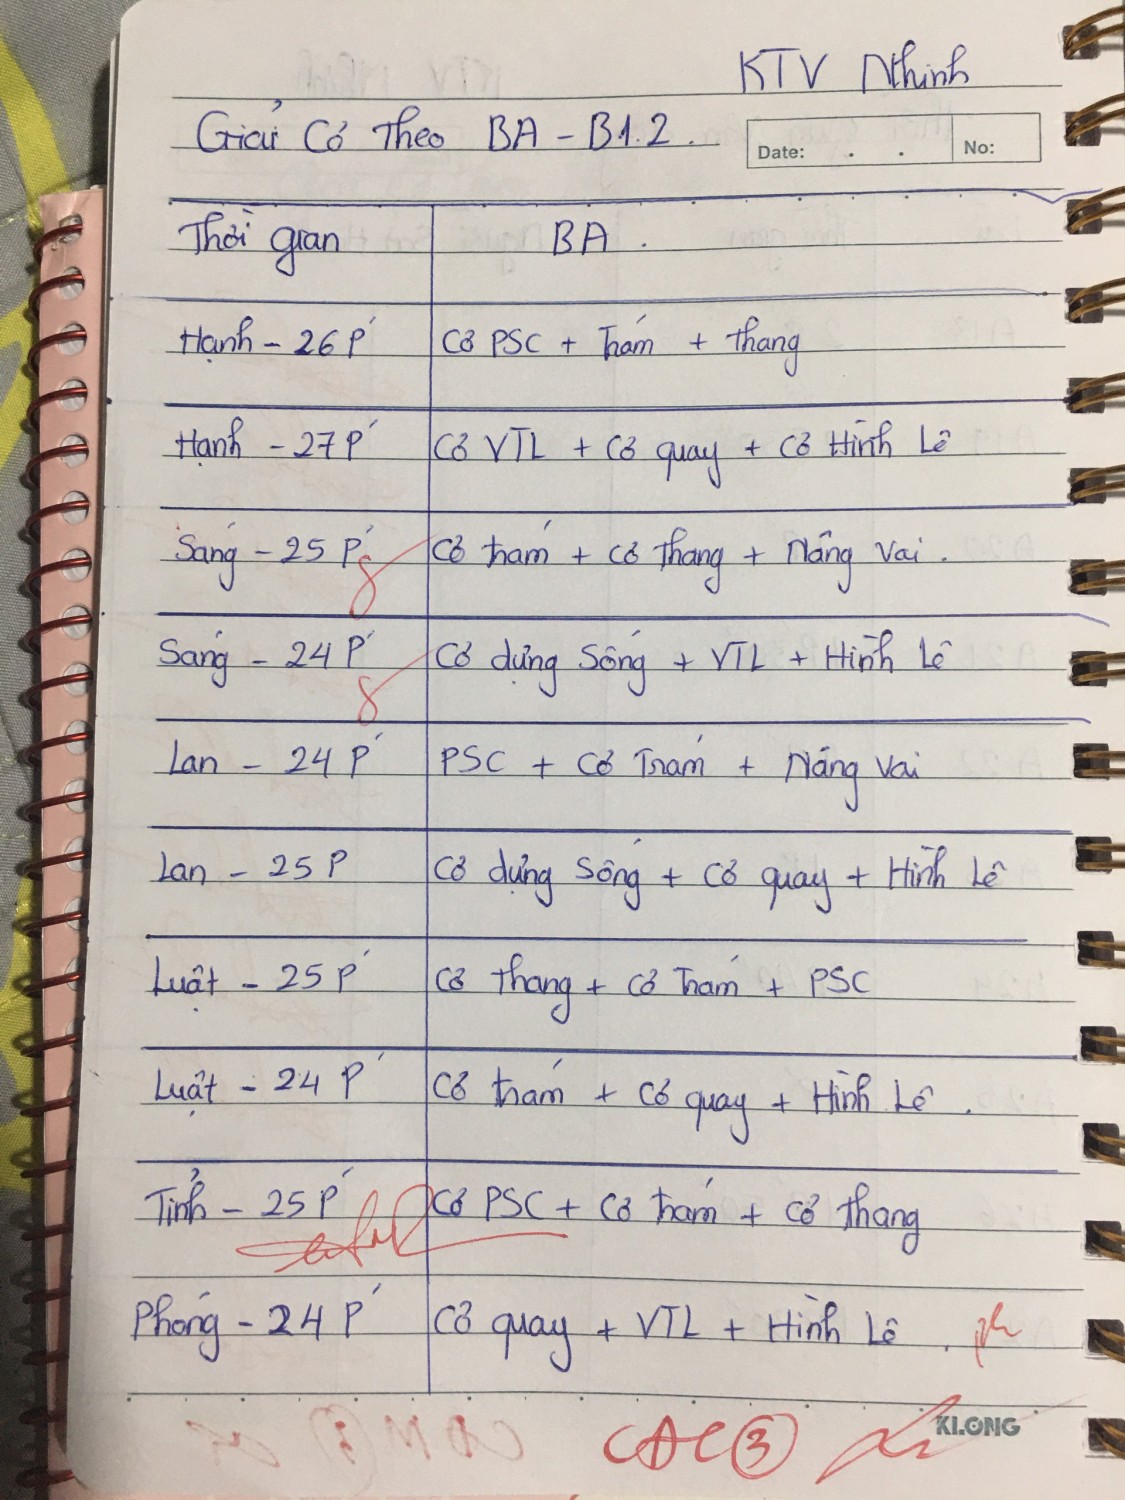 KTV Nhinh
Giải Cơ Theo BA - B1.2.
Date: . . No:
Thời gian BA.
Hạnh - 26 P' Cơ PSC + Trám + thang
Hạnh - 27 P' Cơ VTL + Cơ quay + Cơ Hình Lê
Sáng - 25 P' Cơ trám + Cơ thang + Nâng vai.
Sáng - 24 P' Cơ dựng Sống + VTL + Hình Lê
Lan - 24 P' PSC + Cơ Trám + Nâng vai
Lan - 25 P' Cơ dựng Sống + Cơ quay + Hình Lê
Luật - 25 P' Cơ thang + Cơ Trám + PSC
Luật - 24 P' Cơ trám + Cơ quay + Hình Lê.
Tỉnh - 25 P' Cơ PSC + Cơ trám + Cơ thang
Phóng - 24 P' Cơ quay + VTL + Hình Lê.
KLONG